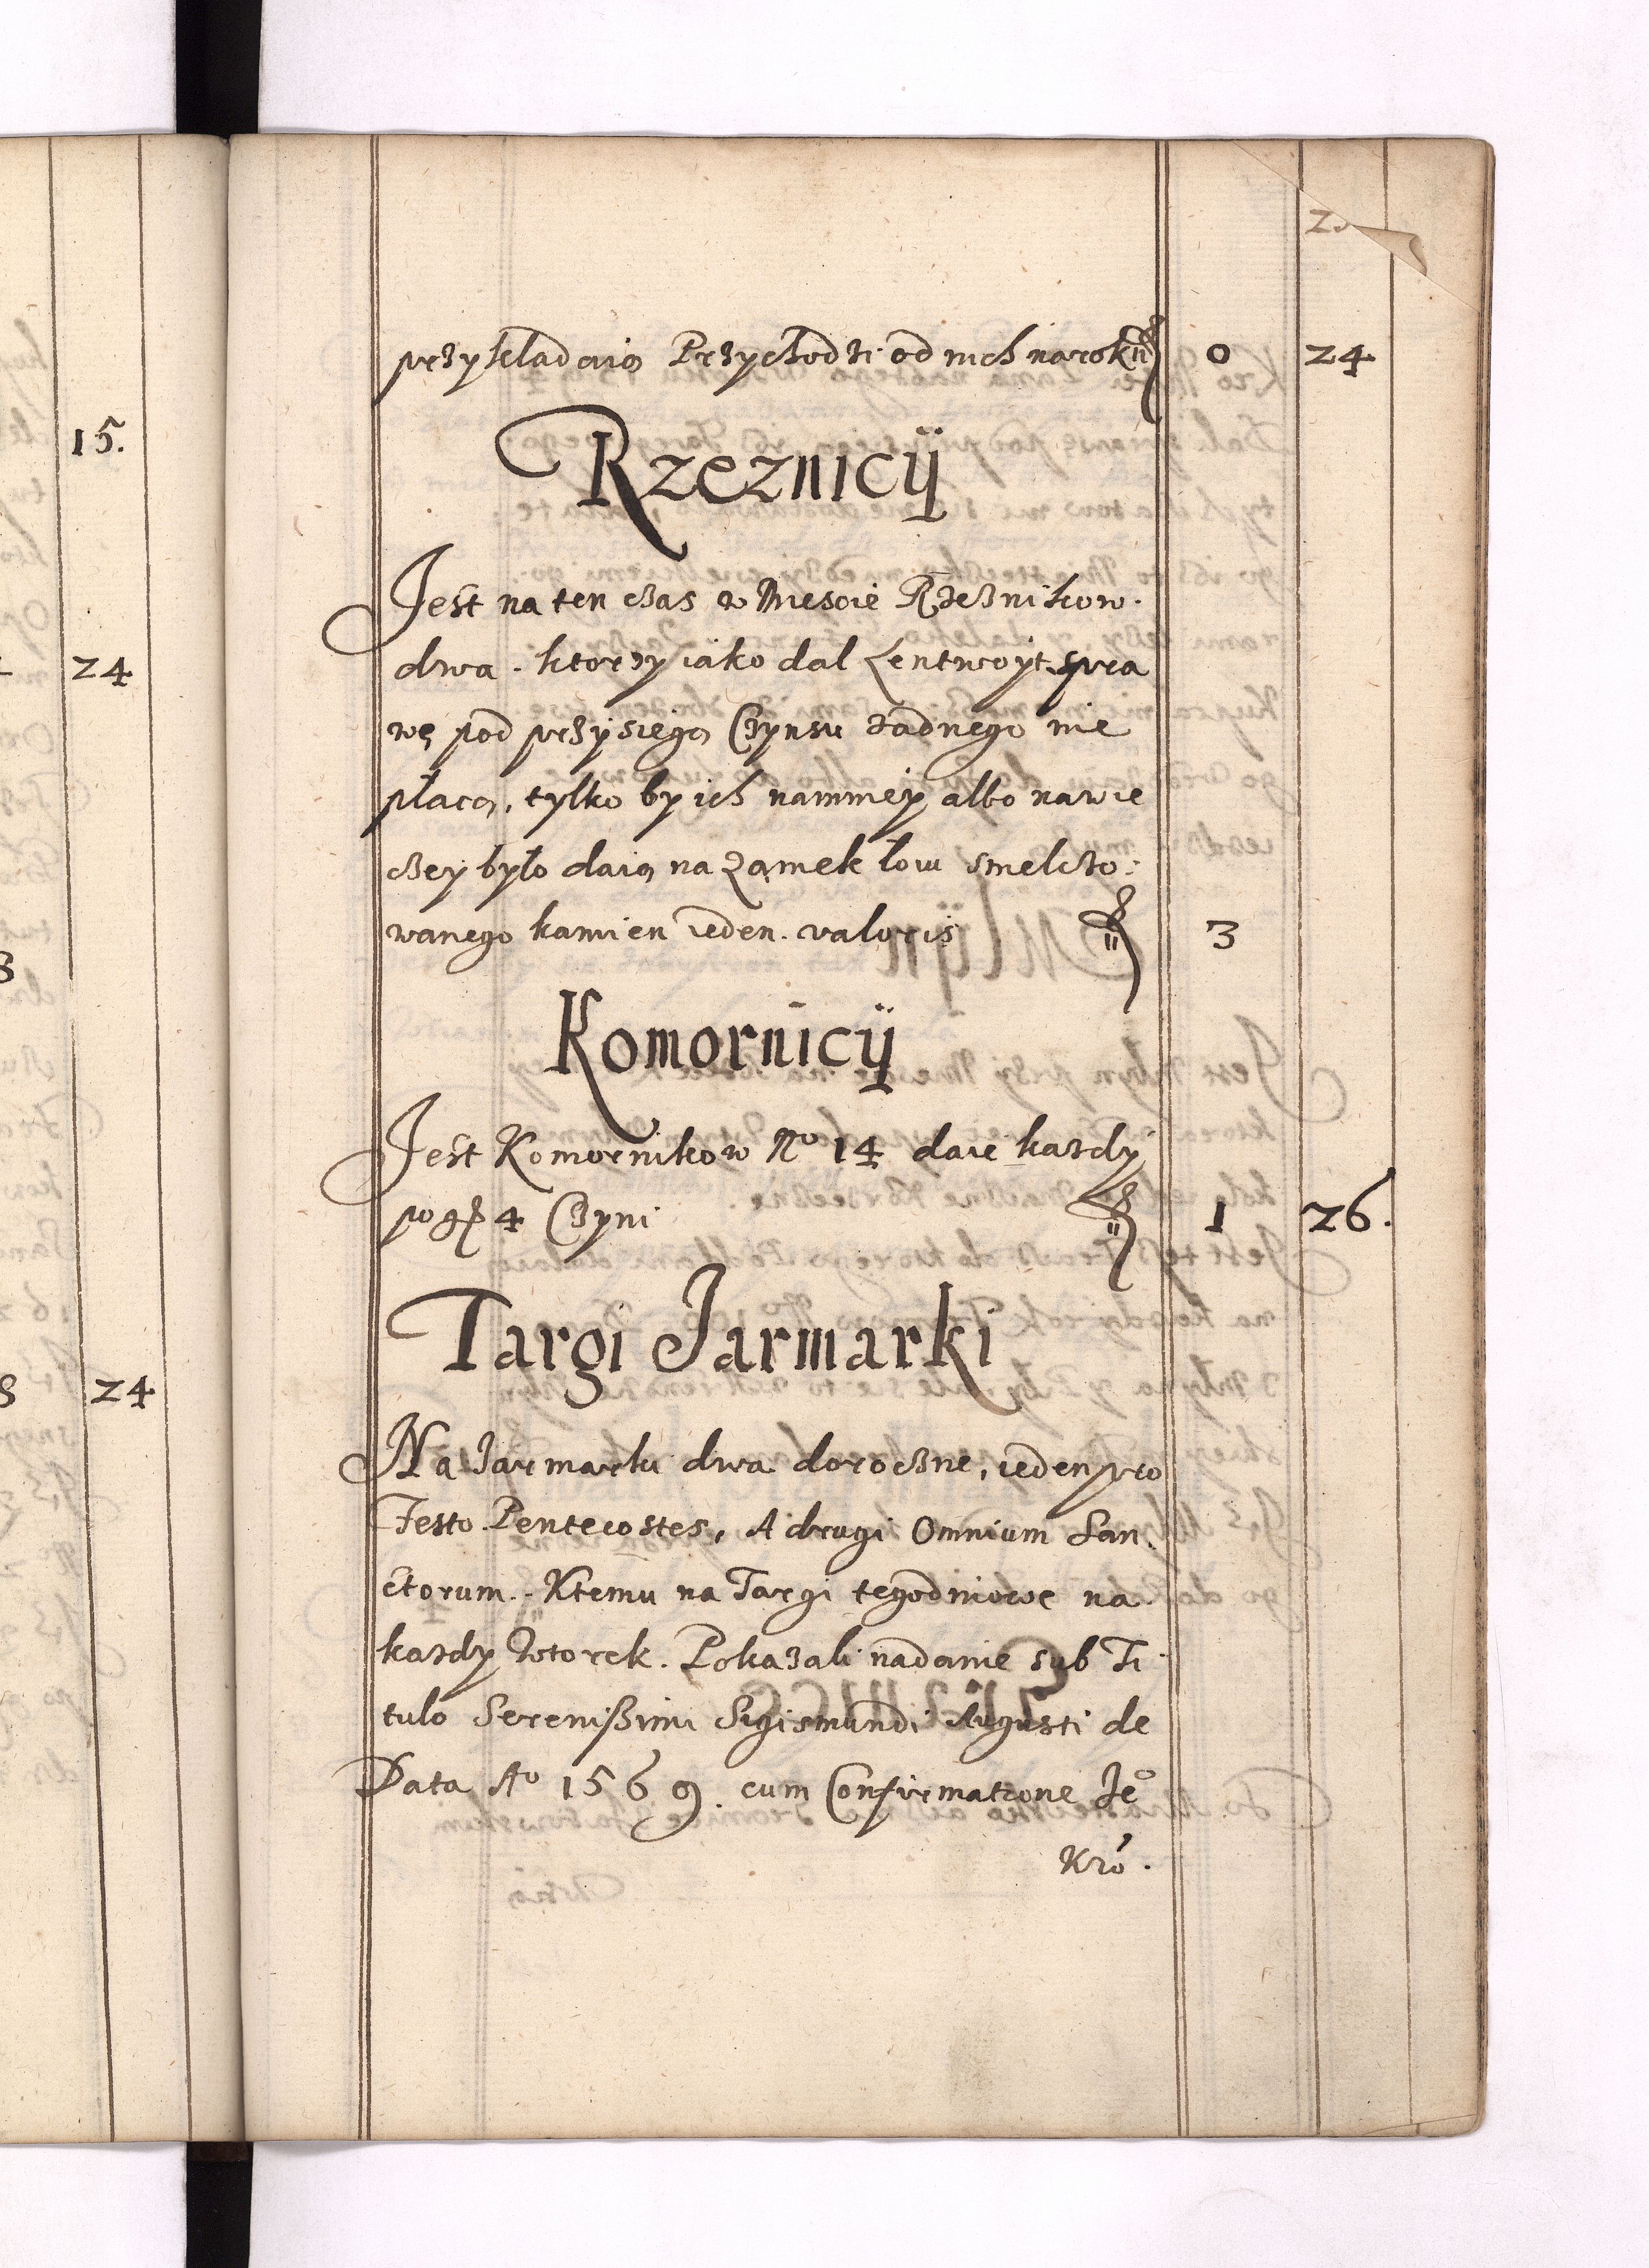 15.
24
3
24
przykladaią Przychodzi od nich narok 0 24
Rzeznicÿ
Jest na ten czas w Miescie Rzeznikow.
dwa. ktorzy iako dal Lentwoyt spra
wę pod przysięgą Czynsu żadnego nie
płacą, tylko by ich namniey albo nawie
czey było daią na Zamek łoiu smelczo:
wanego kamien ieden. valoris 3
Komornicÿ
Jest Komornikow No 14 daie kazdy
po gr 4 Czyni 1 26.
Targi Jarmarki
Na Jarmarki dwa doroczne, ieden pro
Festo Pentecostes, A drugi Omnium San.
ctorum. Ktemu na Targi tegodniowe na
kazdy Wtorek. Pokazali nadanie sub Ti
tulo Serenißimi Sigismundi Augusti de
Data Ao 1569. cum Confirmatione Jeo
Kró.